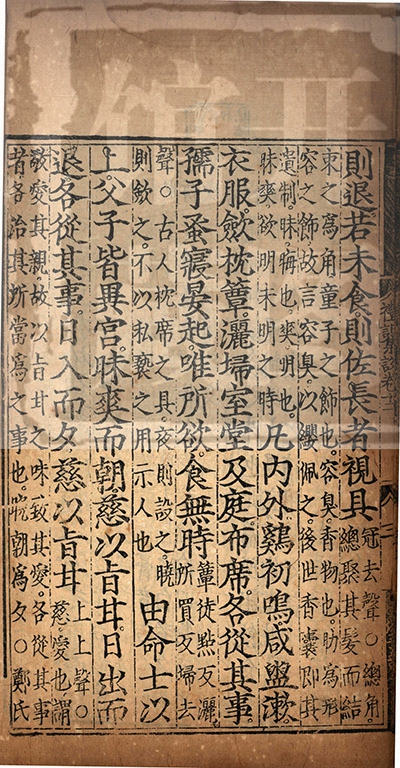 則退若未食則佐長者視具冠去聲○總角總聚其髮而結
束之爲角童子之飾也容臭香物也助爲形
容之飾故言容臭以纓佩之後世香囊即其
遺制昧晦也爽明也昧爽欲明未明之時凡内外鷄初鳴咸盥漱
衣服斂枕簟灑埽室堂及庭布席各從其事
孺子蚤寢晏起唯所欲食無時簟徒㸃反灑所買反埽去
聲○古人枕席之具夜則設之曉則斂之不以私褻之用示人也由命士以
上父子皆異宮昧爽而朝慈以旨甘日出而
退各從其事日入而夕慈以旨甘上上聲○慈愛也謂
敬愛其親故以旨甘之味致其愛各從其事
者各治其所當爲之事也晚朝爲夕○鄭氏